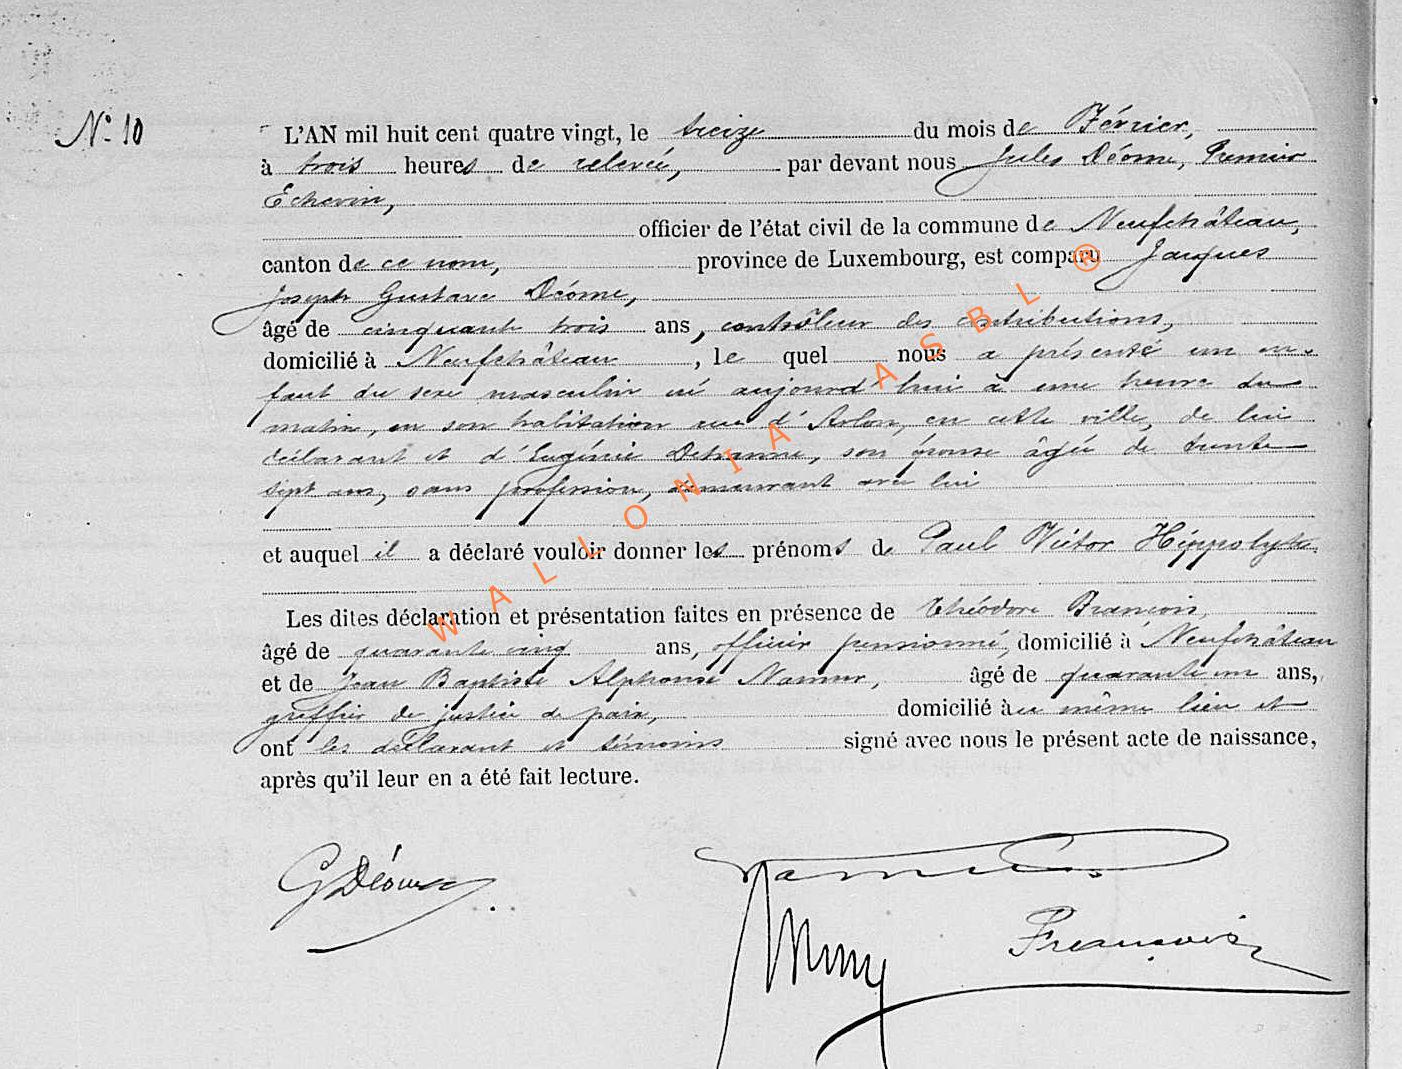 N° 10
L'AN mil huit cent quatre vingt, le treize du mois de Février,
à trois heures de relevée, par devant nous Jules Déome, Premier
Echevin,
officier de l'état civil de la commune de Neufchâteau,
canton de ce nom, province de Luxembourg, est comparu Jacques
Joseph Gustave Déome,
âgé de cinquante trois ans, contrôleur des contributions,
domicilié à Neufchâteau, le quel nous a présenté un en-
fant du sexe masculin né aujourd'hui à une heure du
matin, en son habitation rue d'Arlon, en cette ville, de lui
déclarant et d'Eugénie son épouse âgée de trente
sept ans, sans profession, demeurant avec lui
et auquel il a déclaré vouloir donner les prénoms de Paul Victor Hippolyte
Les dites déclaration et présentation faites en présence de Théodore François,
âgé de quarante cinq ans, officier pensionné, domicilié à Neufchâteau
et de Jean Baptiste Alphonse Namur, âgé de quarante un ans,
greffier de justice de paix, domicilié au même lieu et
ont les déclarant et témoins signé avec nous le présent acte de naissance,
après qu'il leur en a été fait lecture.
GDéome
Namur
François
WALLONIA ASBL ®